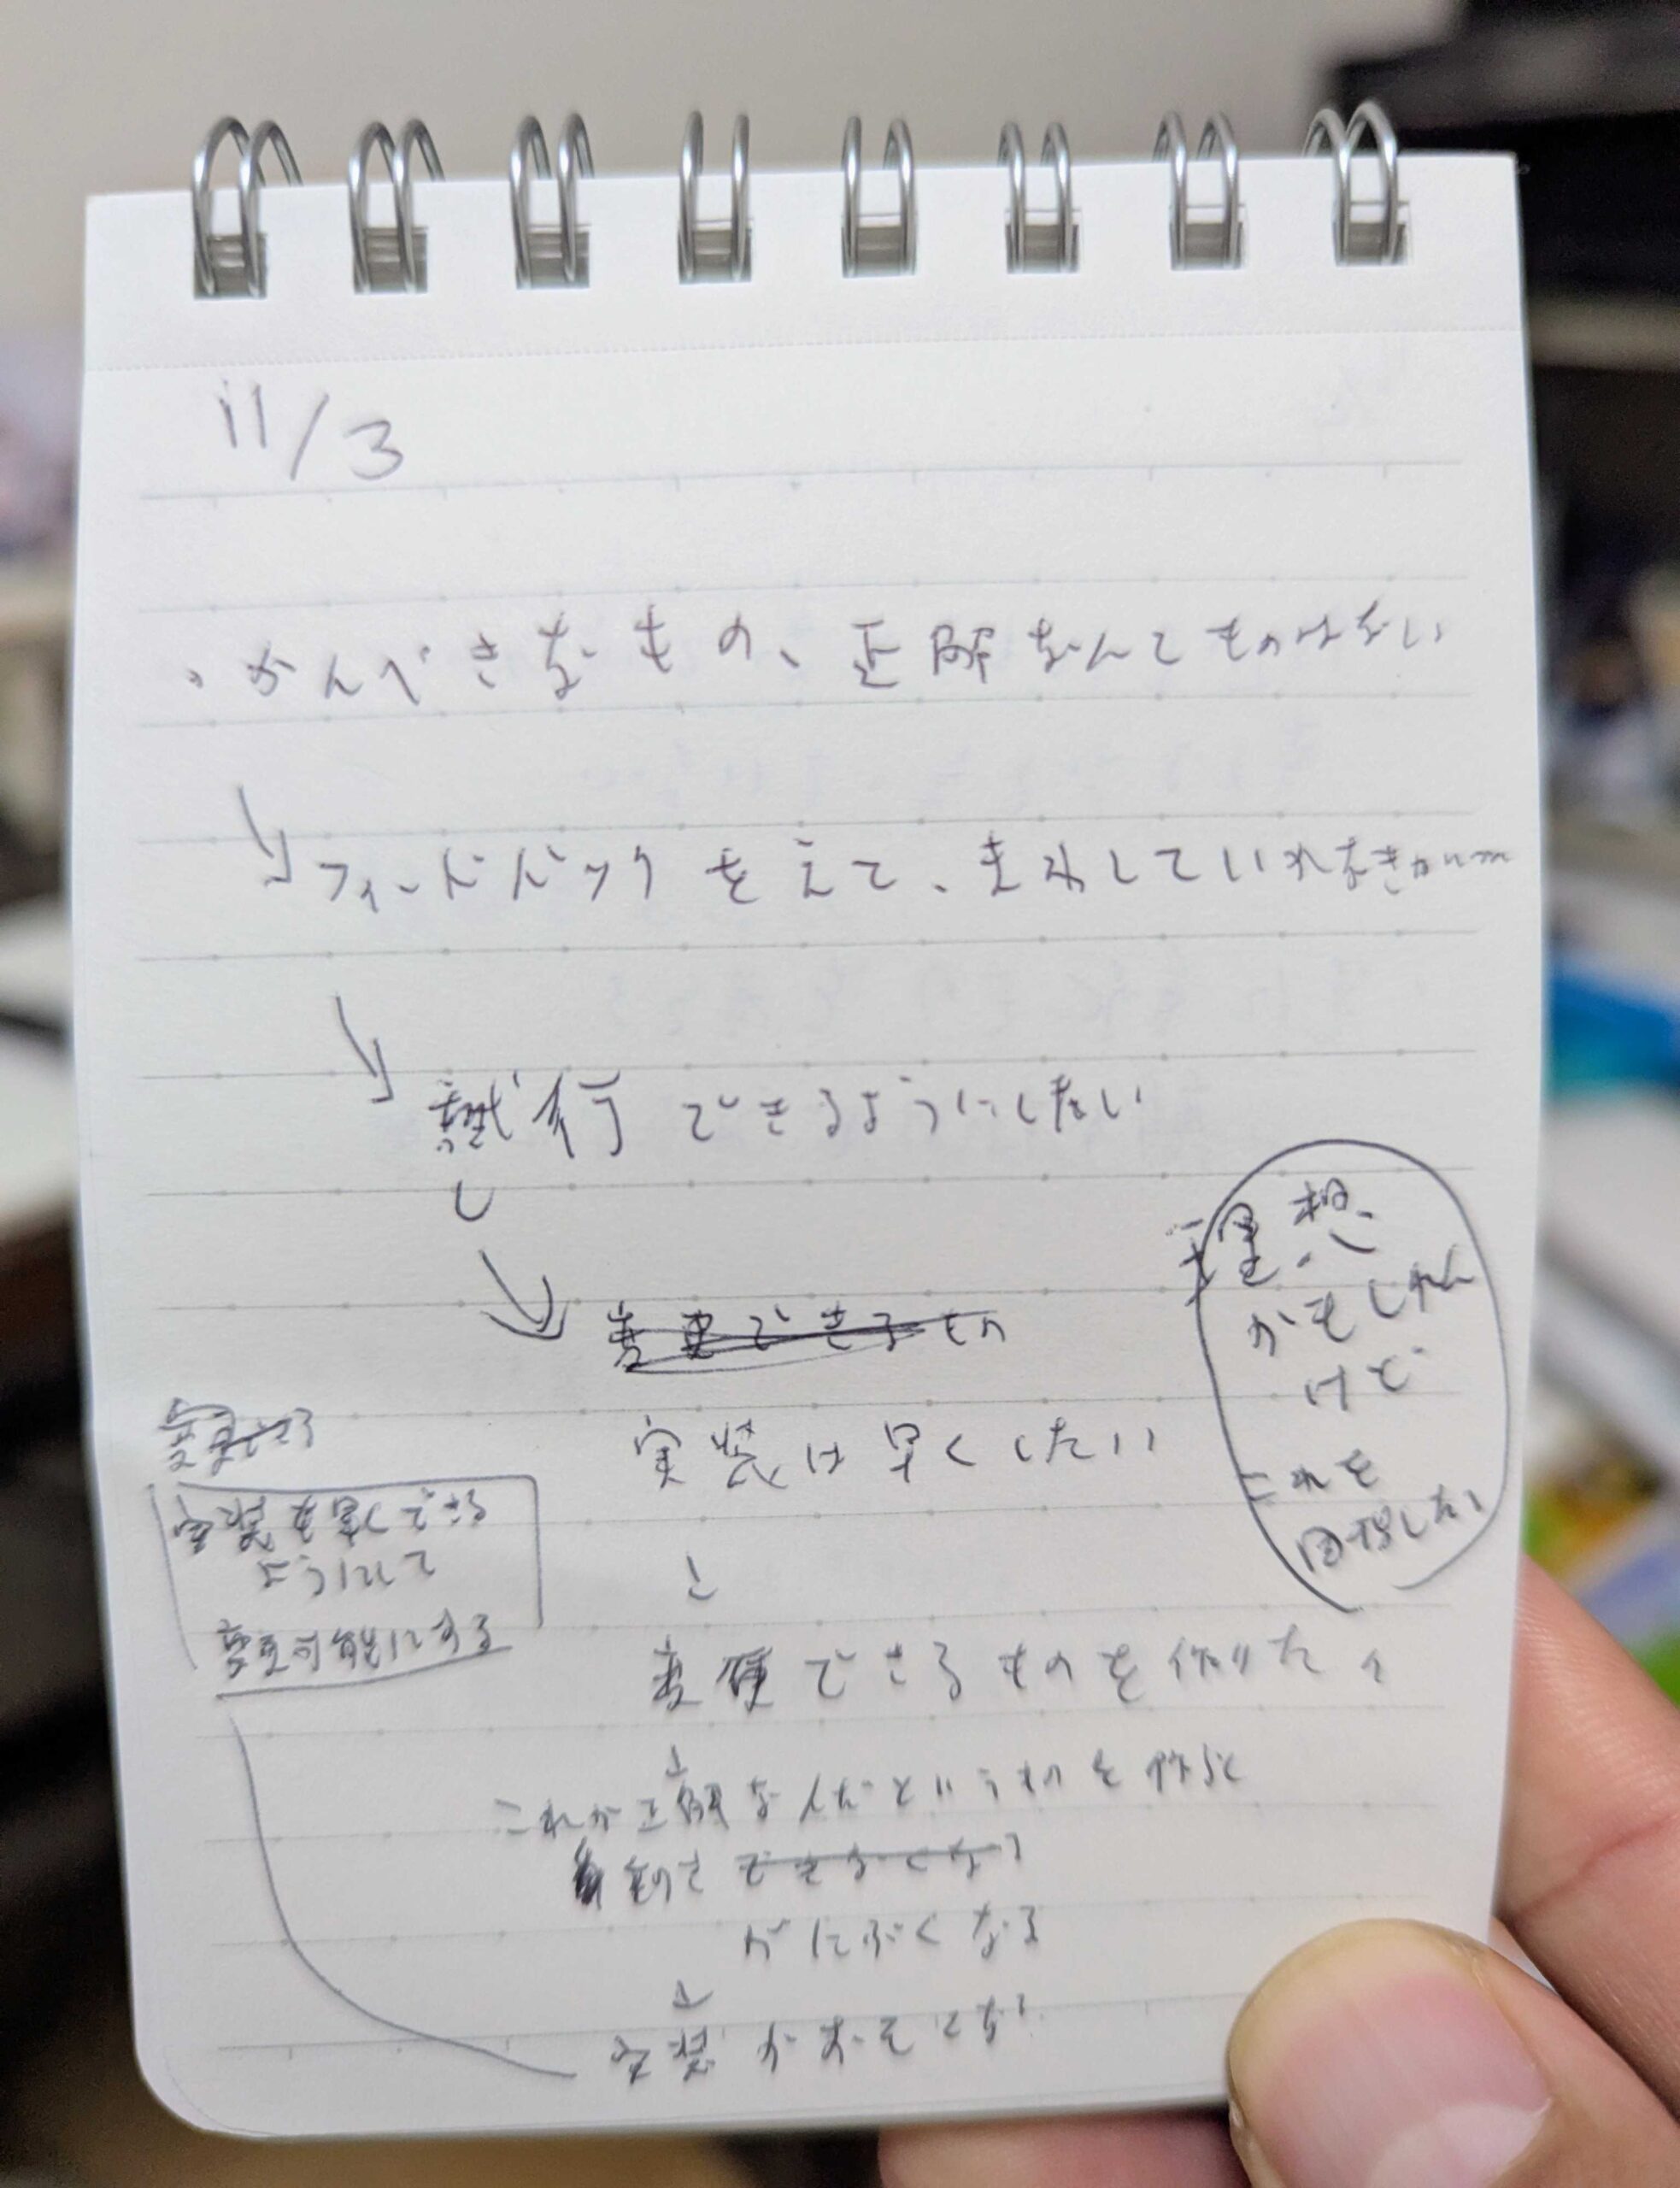 11/3
・かんぺきなもの、正解なんてものはない
フィードバックをえて、まわしていかなきゃ
試行できるようにしたい
変更できるもの
理想
かもしれん
けど
これを
目指したい
変更できる
実装は早くしたい
実装も早くできる
ようにして
変更可能にする
と
変更できるものを作りたい
これが正解なんだというものを作ると
できなくなる
がにぶくなる
実装がおそくなる